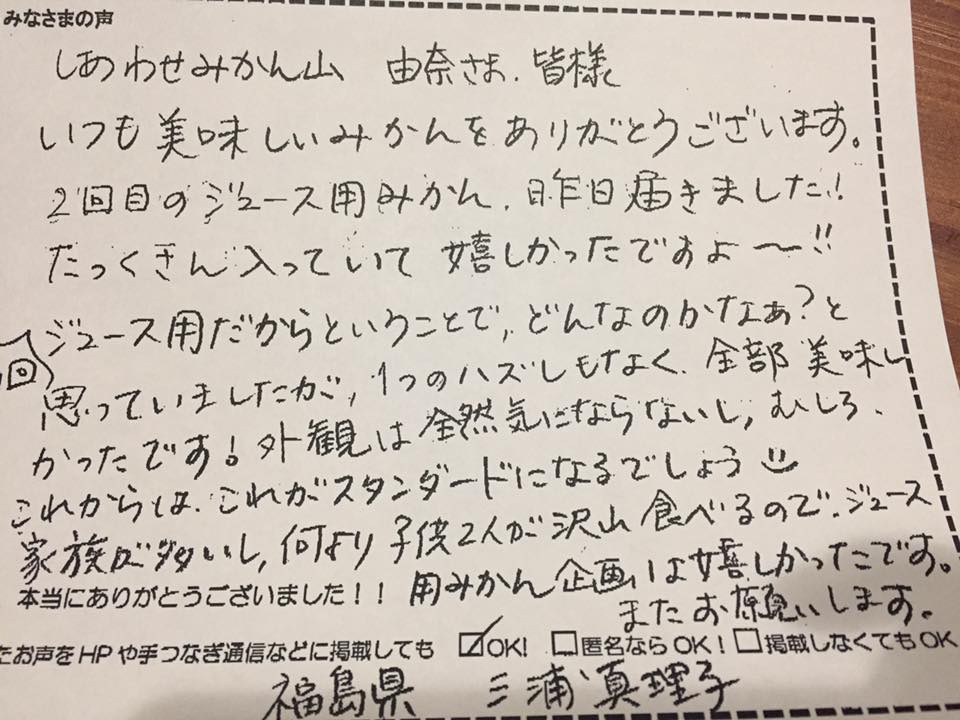 みなさまの声
しあわせみかん山 由奈さま、皆様
いつも美味しいみかんをありがとうございます。
2回目のジュース用みかん、昨日届きました!
たっくさん入っていて嬉しかったですよ〜!!
ジュース用だからということで、どんなのかなぁ?と
思っていましたが、1つのハズレもなく、全部美味し
かったです!外観は全然気にならないし、むしろ、
これからは、これがスタンダードになるでしょう
家族が多いし、何より子供2人が沢山食べるので、ジュース
用みかん企画は嬉しかったです。
またお願いします。
本当にありがとうございました!!
たお声をHPや手つなぎ通信などに掲載しても ☑OK! □匿名ならOK! □掲載しなくてもOK
福島県 三浦真理子